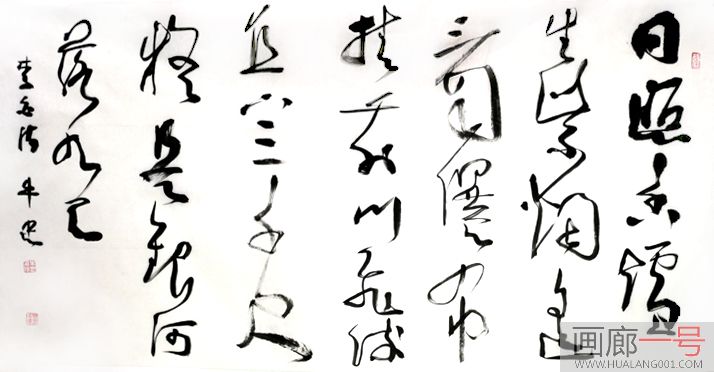 日照香爐
生紫烟遥
看瀑布
挂前川飛流
直下三千尺
疑是銀河
落九天
李白詩 牛
画廊一号
WWW.HUALANG001.COM